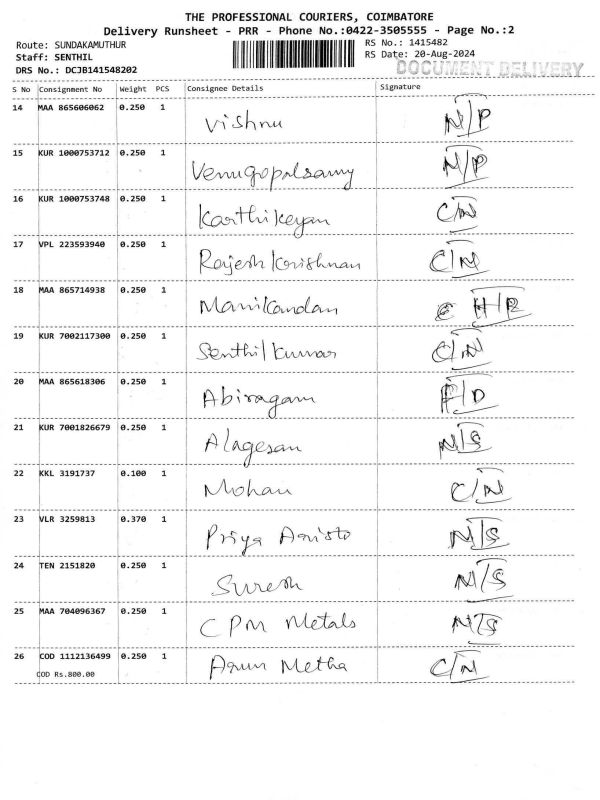 THE PROFESSIONAL COURIERS, COIMBATORE
Delivery Runsheet - PRR - Phone No.:0422-3505555 - Page No.:2
Route: SUNDAKAMUTHUR RS No.: 1415482
Staff: SENTHIL RS Date: 20-Aug-2024
DRS No.: DCJB141548202 DOCUMENT DELIVERY
S No Consignment No Weight PCS Consignee Details Signature
14 MAA 865606062 0.250 1 Vishnu N/P
15 KUR 1000753712 0.250 1 Venugopalsamy N/P
16 KUR 1000753748 0.250 1 Karthikeyan C/N
17 VPL 223593940 0.250 1 Rajesh Korishnan C/N
18 MAA 865714938 0.250 1 Manikandan
19 KUR 7002117300 0.250 1 Senthil Kumar C/N
20 MAA 865618306 0.250 1 Abiragam F/D
21 KUR 7001826679 0.250 1 Alagesan N/S
22 KKL 3191737 0.100 1 Mohan C/N
23 VLR 3259813 0.370 1 Priya Aristo N/S
24 TEN 2151820 0.250 1 Suresh N/S
25 MAA 704096367 0.250 1 CPM Metals N/S
26 COD 1112136499 0.250 1 Arun Metha C/N
COD Rs.800.00